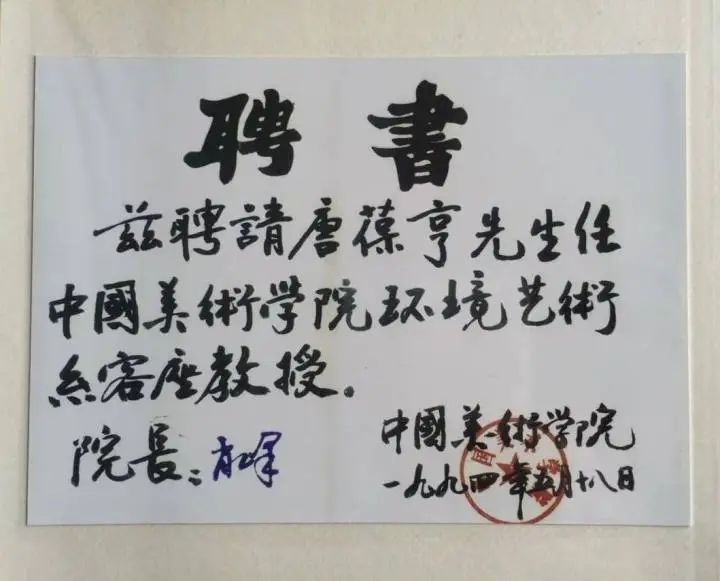 聘書
茲聘請唐葆亨先生任
中國美術學院环境艺術
系客座教授.
院長: 肖峰
中國美術學院
一九九四年五月十八日